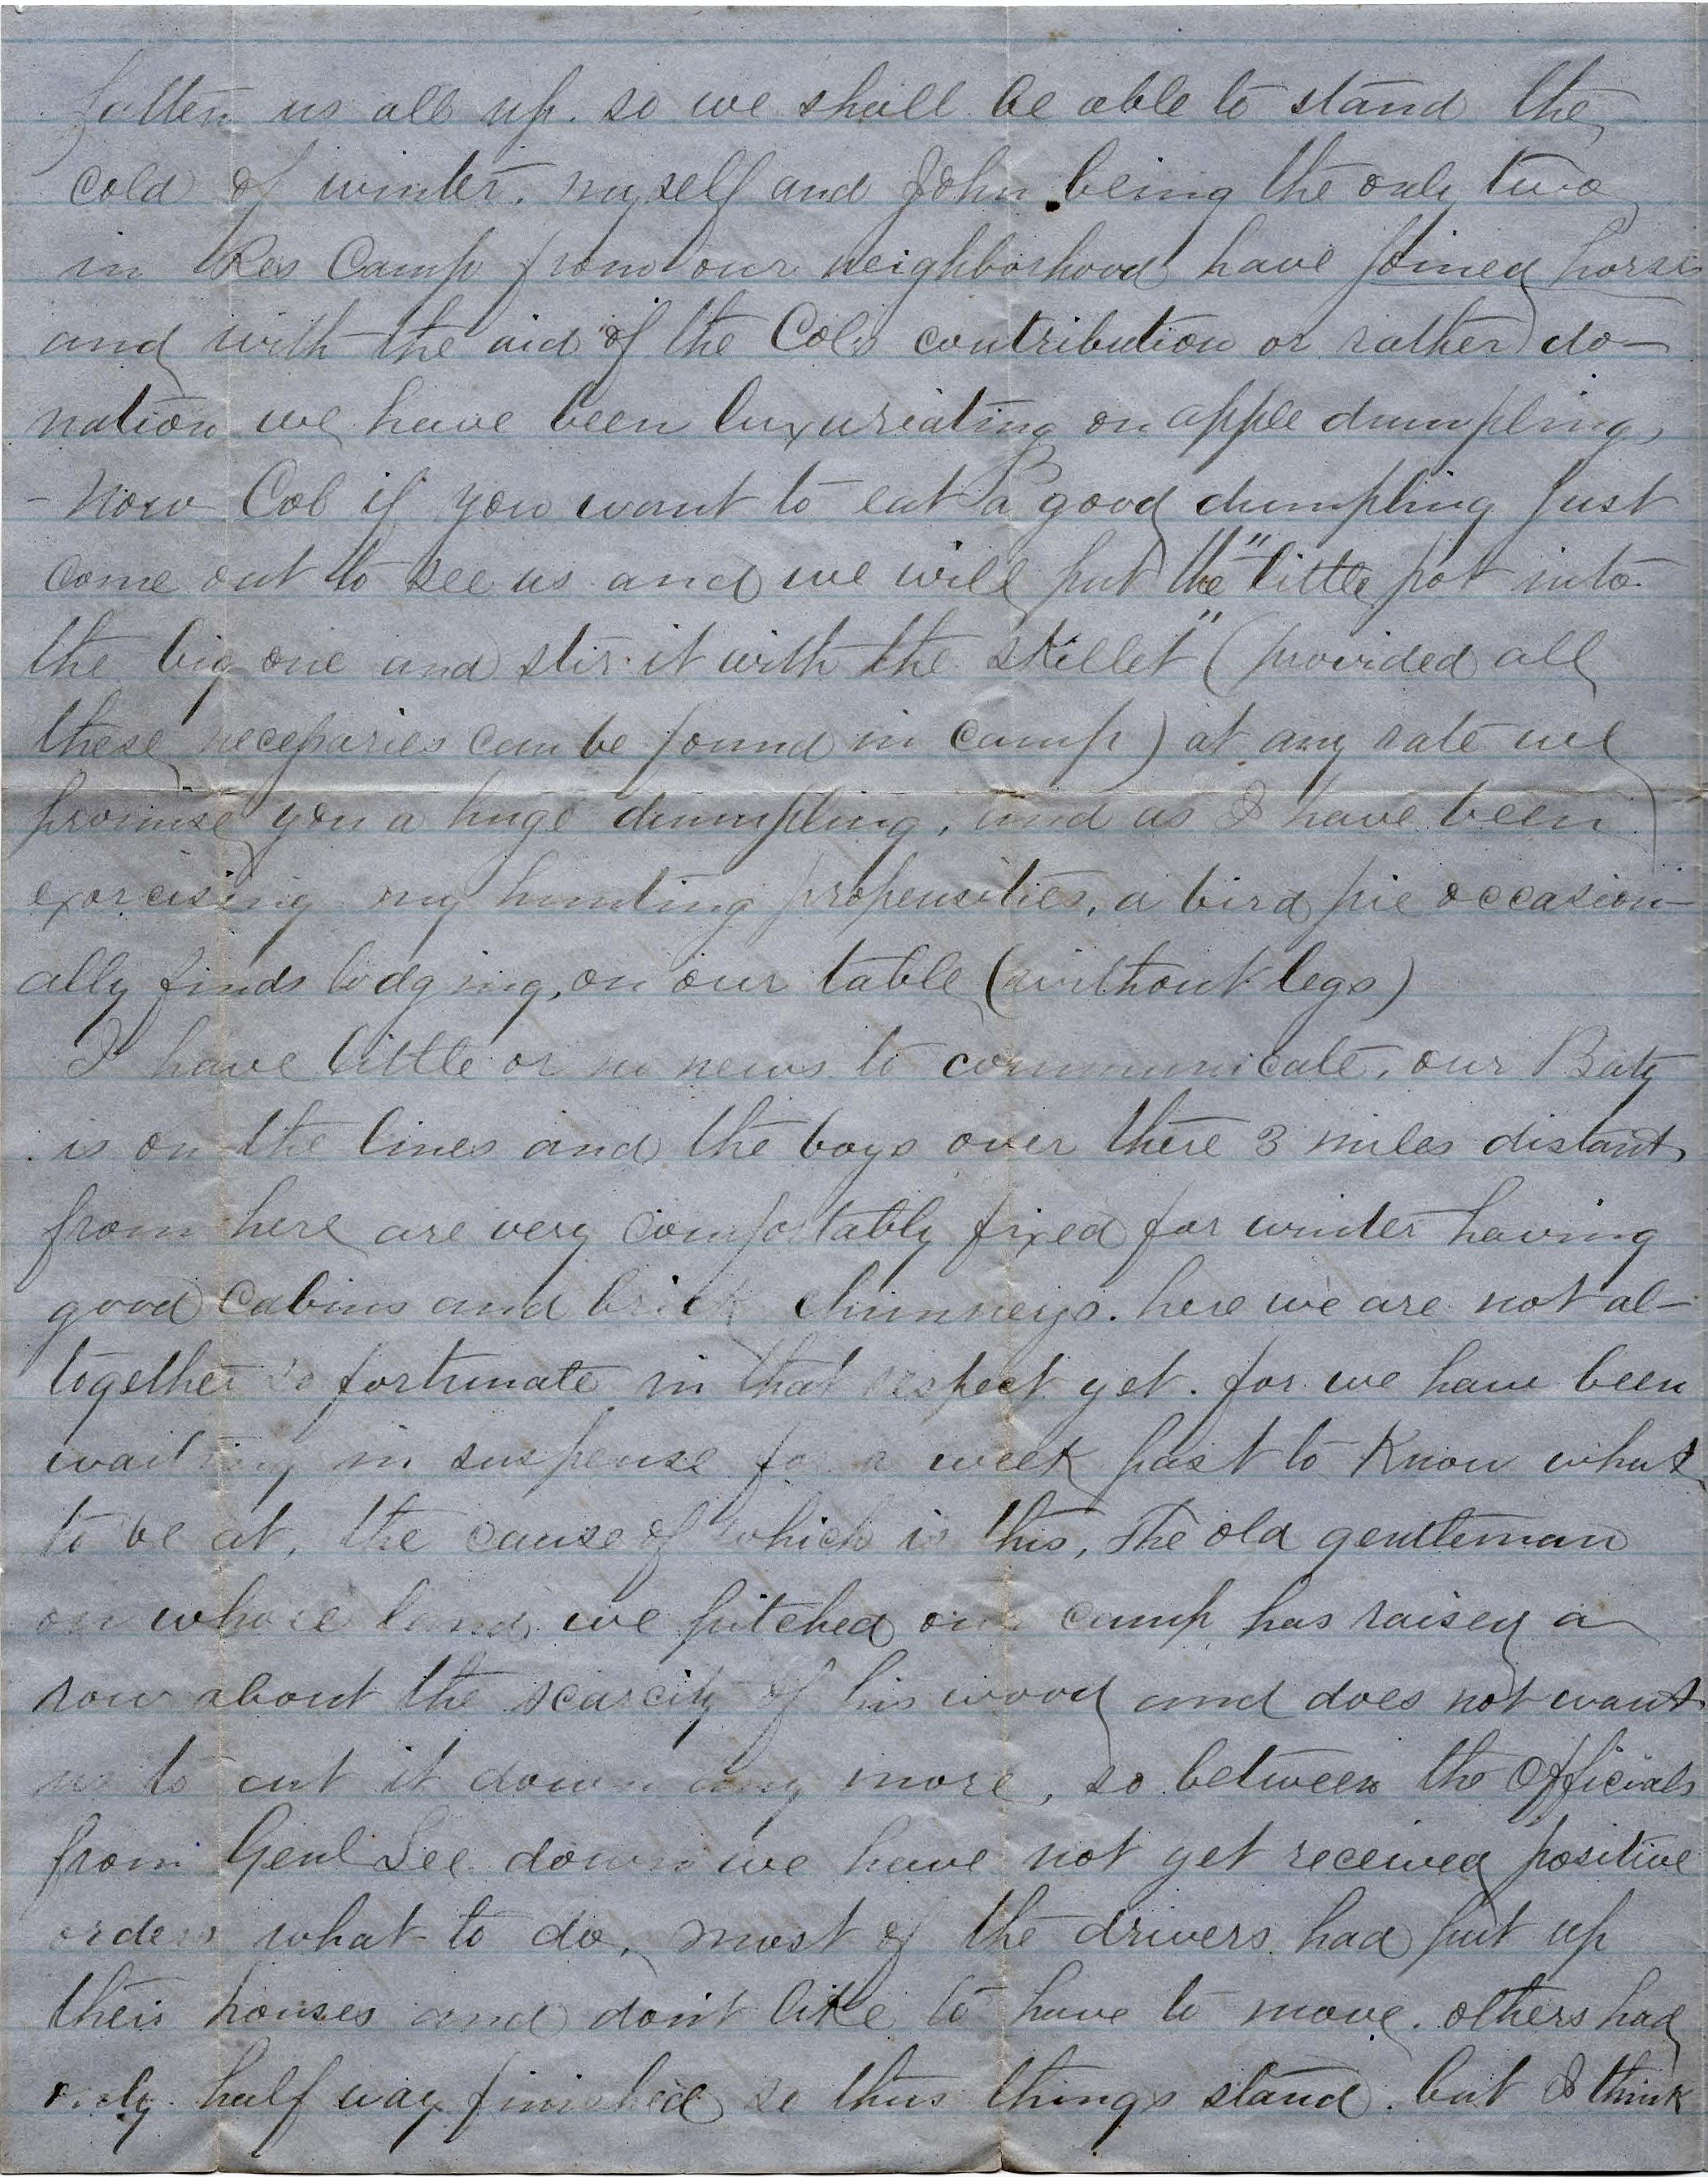 fatten us all up. so we shall be able to stand the
cold of winter. myself and John being the only two
in Res Camp from our neighborhood have joined horses
and with the aid of the Cols contribution or rather do-
nation we have been luxuriating on apple dumplings
- Now Col if you want to eat a good dumpling just
come out to see us and we will put the "little pot into
the big one and stir it with the skillet" (provided all
these necessaries can be found in camp) at any rate we
promise you a huge dumpling, and as I have been
exorcising my hunting propensities, a bird pie occasion-
ally finds lodging, on our table (without legs)
I have little or no news to communicate, our Baty
is on the lines and the boys over there 3 miles distant
from here are very comfortably fixed for winter having
good Cabins and brick chimneys. here we are not al-
together so fortunate in that respect yet. for we have been
waiting in suspense for a week past to Know what
to be at, the cause of which is this, The old gentleman
on whose land we pitched our camp has raised a
row about the scarcity of his wood and does not want
us to cut it down any more, so between the Officials
from Genl Lee down we have not yet received positive
orders what to do, most of the drivers had put up
their houses and don't like to have to move. others had
only half way finished so thus things stand. but I think